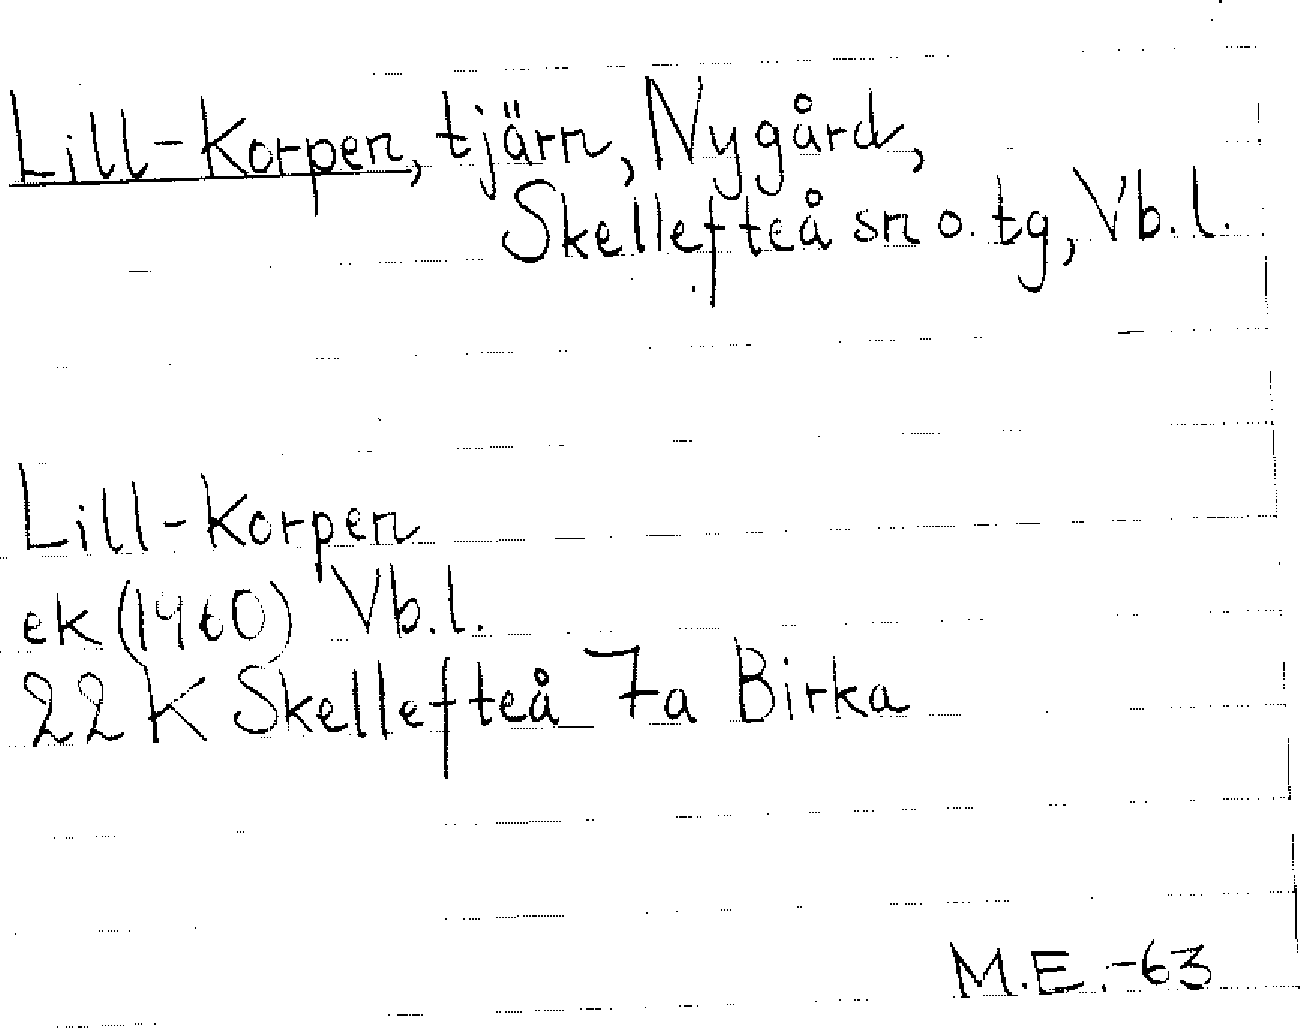 Lill-Korpen, tjärn, Nygård,
Skellefteå sn o. tg, Vb. l.
Lill-Korpen
ek (1960) Vb. l.
22 K Skellefteå 7a Birka
M.E.-63